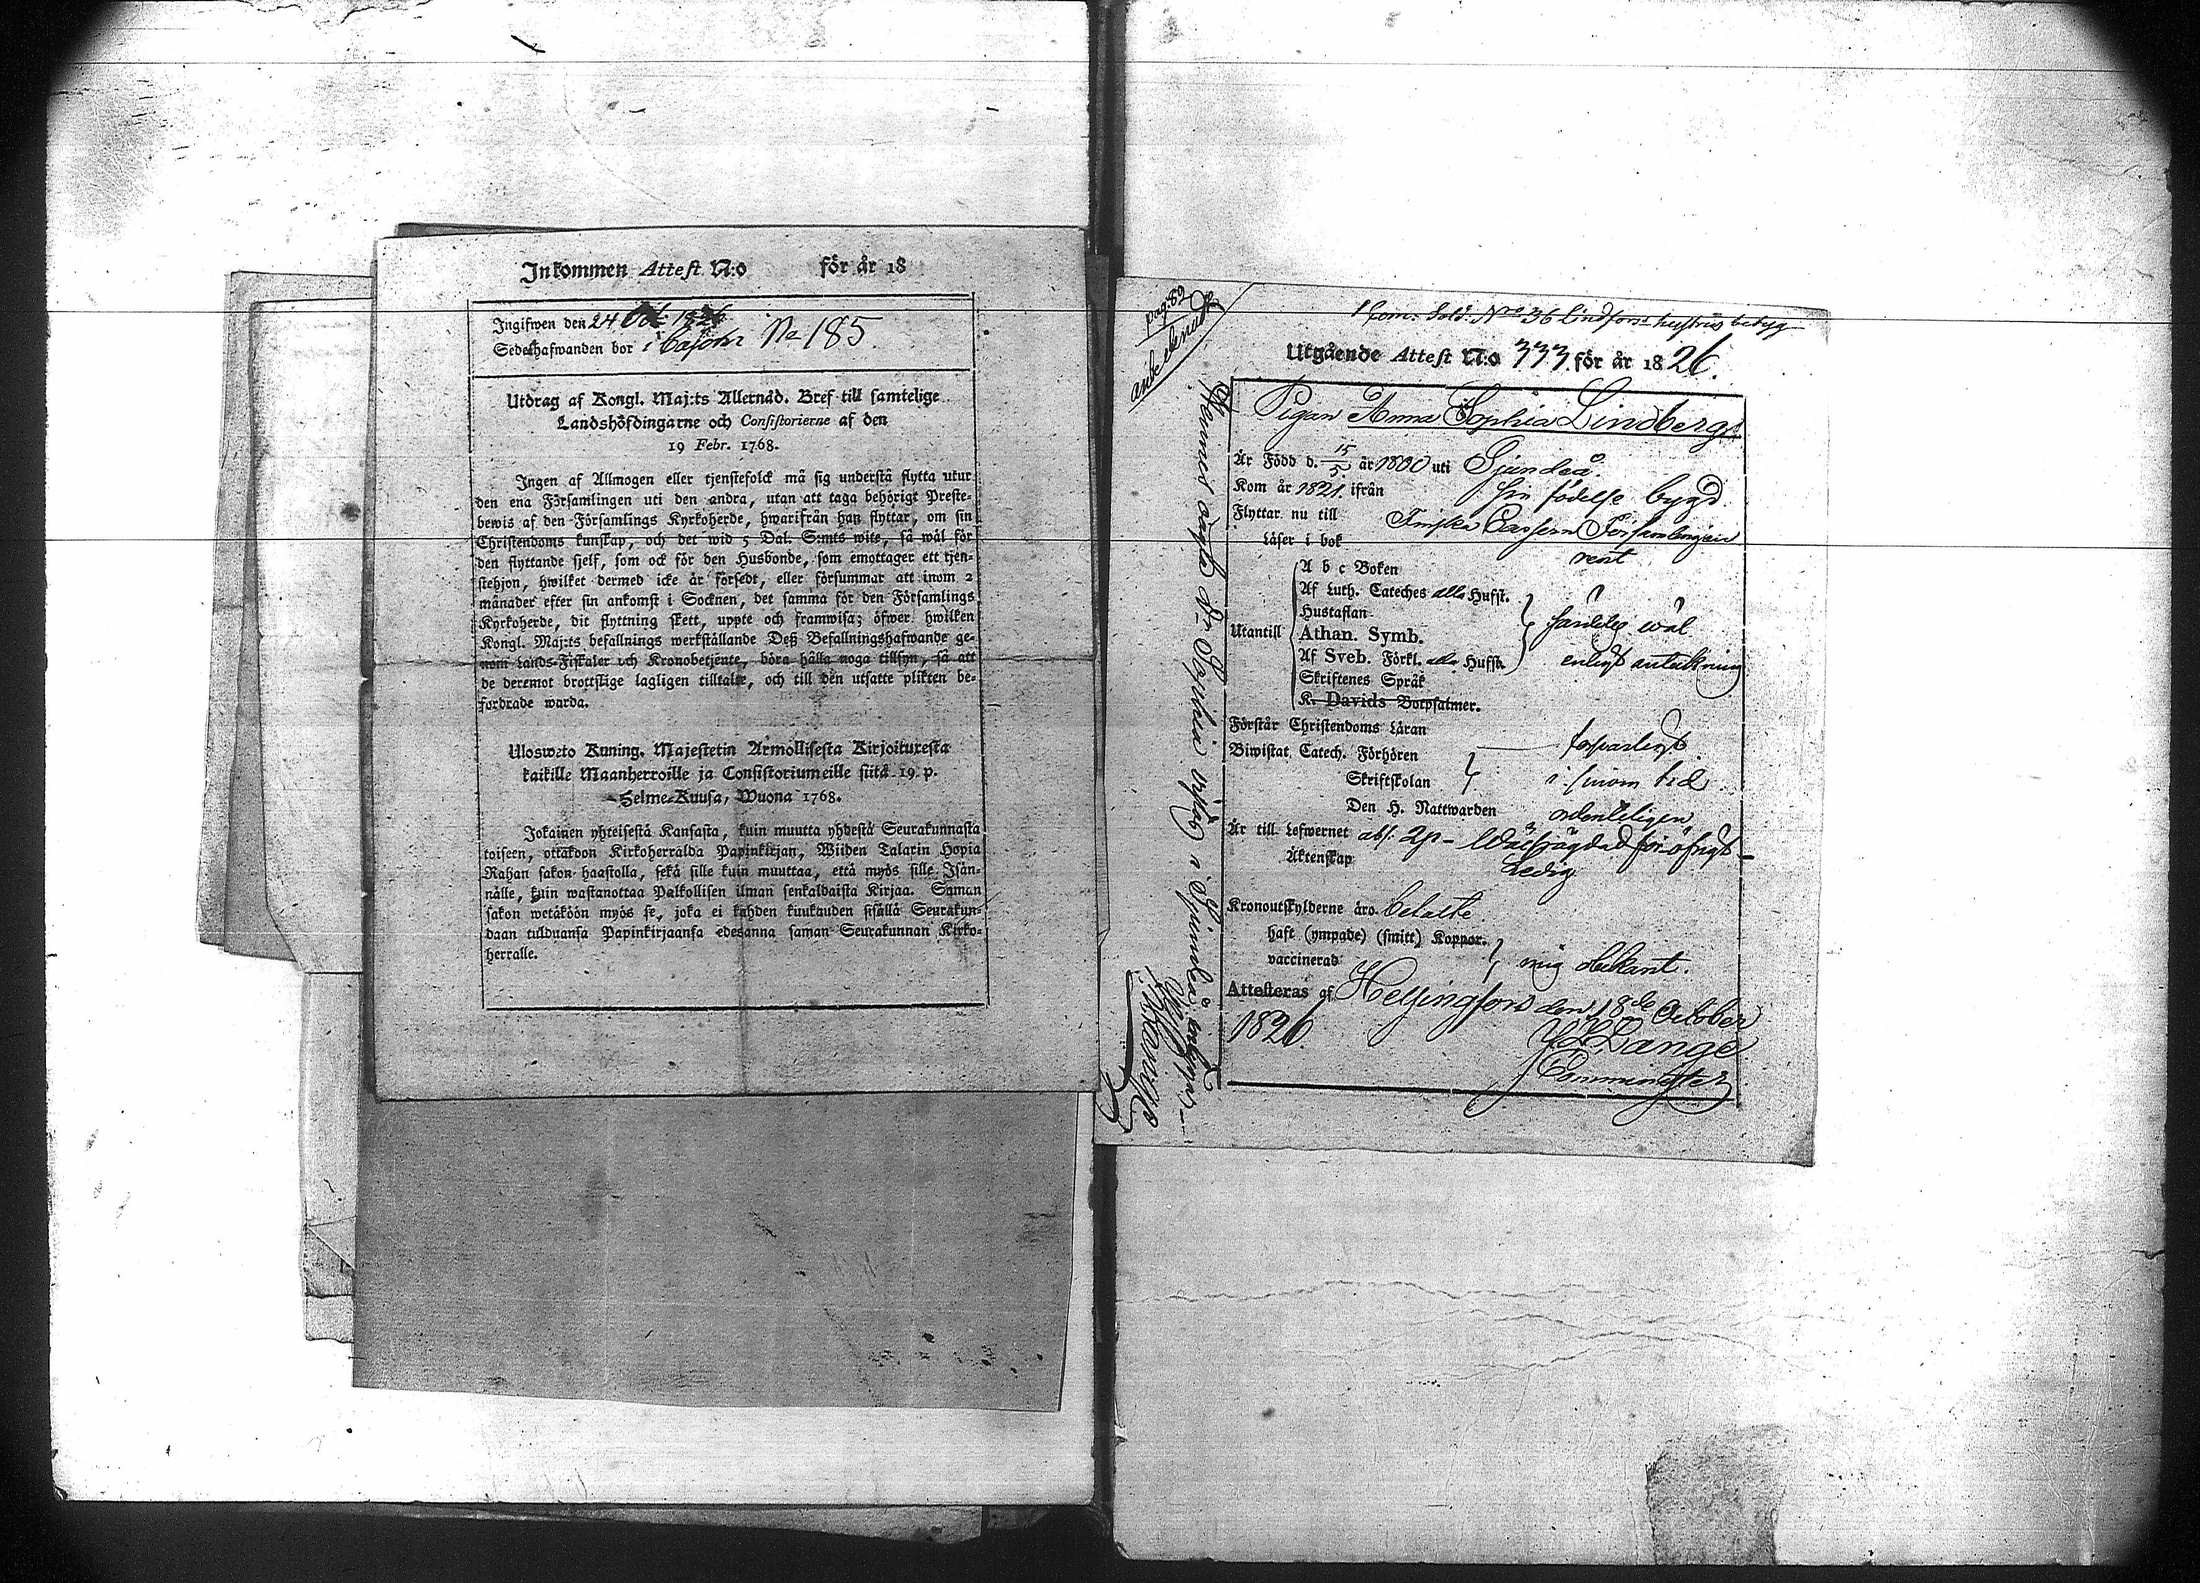 Inkommen Attest N:o för år 18
Ingifwen den 24 Oct. 1826
Sedelhafwanden bor i Casern No 185
Utdrag af Kongl. Maj:ts Allernåd. Bref till samtelige
Landshöfdingarne och Consistorierne af den
19 Febr. 1768.
Ingen af Allmogen eller tjenstefolck må sig understå flytta utur
den ena Församlingen uti den andra, utan att taga behörigt Preste-
bewis af den Församlings Kyrkoherde, hwarifrån han flyttar, om sin
Christendoms kunskap, och det wid 5 Dal. S:mts wite, så wäl för
den flyttande sjelf, som ock för den Husbonde, som emottager ett tjen-
stehjon, hwilket dermed icke är försedt, eller försummar att inom 2
månader efter sin ankomst i Socknen, det samma för den Församlings
Kyrkoherde, dit flyttning skett, uppte och framwisa; öfwer hwilken
Kongl. Maj:ts befallnings werkställande Deß Befallningshafwande ge-
nom Lands-Fiskaler och Kronobetjente, böra hålla noga tillsyn, så att
de deremot brottslige lagligen tilltalte, och till den utsatte plikten be-
fordrade warda.
Ulosweto Kuning. Majestetin Armollisesta Kirjoituresta
kaikille Maanherroille ja Consistoriumeille siitä 19 p.
Helme-Kuusa, Wuona 1768.
Jokainen yhteisestä Kansasta, kuin muutta yhdestä Seurakunnasta
toiseen, ottakoon Kirkoherralda Papinkirjan, Wiiden Talarin Hopia
Rahan sakon haastolla, sekä sille kuin muuttaa, että myös sille Isän-
nälle, kuin wastanottaa Palkollisen ilman senkaldaista Kirjaa. Saman
sakon wetäköön myös se, joka ei kahden kuukauden sisällä Seurakun-
daan tulduansa Papinkirjaansa edesanna saman Seurakunnan Kirko-
herralle.
pag: 82
Sold: No 36 Lindfors hustrus betyg
Utgående Attest N:o 333 för år 1826.
Pigan Anna Sophia Lindberg
Är Född d. 15/5 år 1800 uti Sjundeå
Kom år 1821 ifrån sin födelse bygd
Flyttar nu till Finska Casern Församlingen
Läser i bok rent
A b c Boken
Af Luth. Cateches alla Hufst.
Hustaflan
Utantill Athan. Symb. färdelig wäl
Af Sveb. Förkl. alla Hufst. enligt anteckning
Skriftenes Språk
K. Davids Botpsalmer.
Förstår Christendoms Läran
Biwistat Catech. Förhören
Skriftskolan i sinom tid
Den H. Nattwarden ordenteligen
Är till Lefwernet
Äktenskap Ledig
Kronoutskylderne äro betalte.
haft (ympade) (smitt) Koppor.
vaccinerad mig obekant.
Attesteras af Helsingfors den 18de October
1826.
Lange
Comminister
Hennes Sophia i Sjundeå